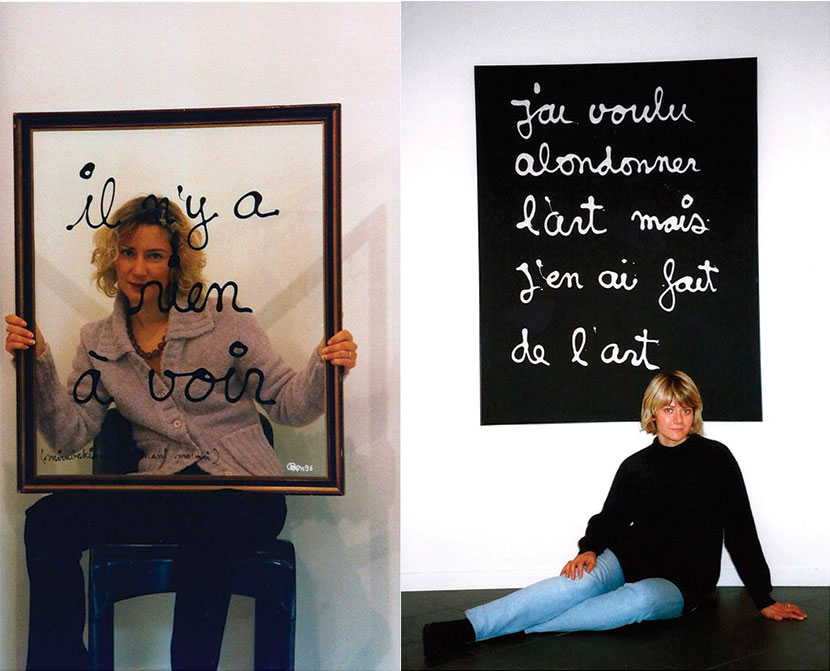 il n'y a
rien
à voir
Ben 96
j'ai voulu
abondonner
l'art mais
j'en ai fait
de l'art